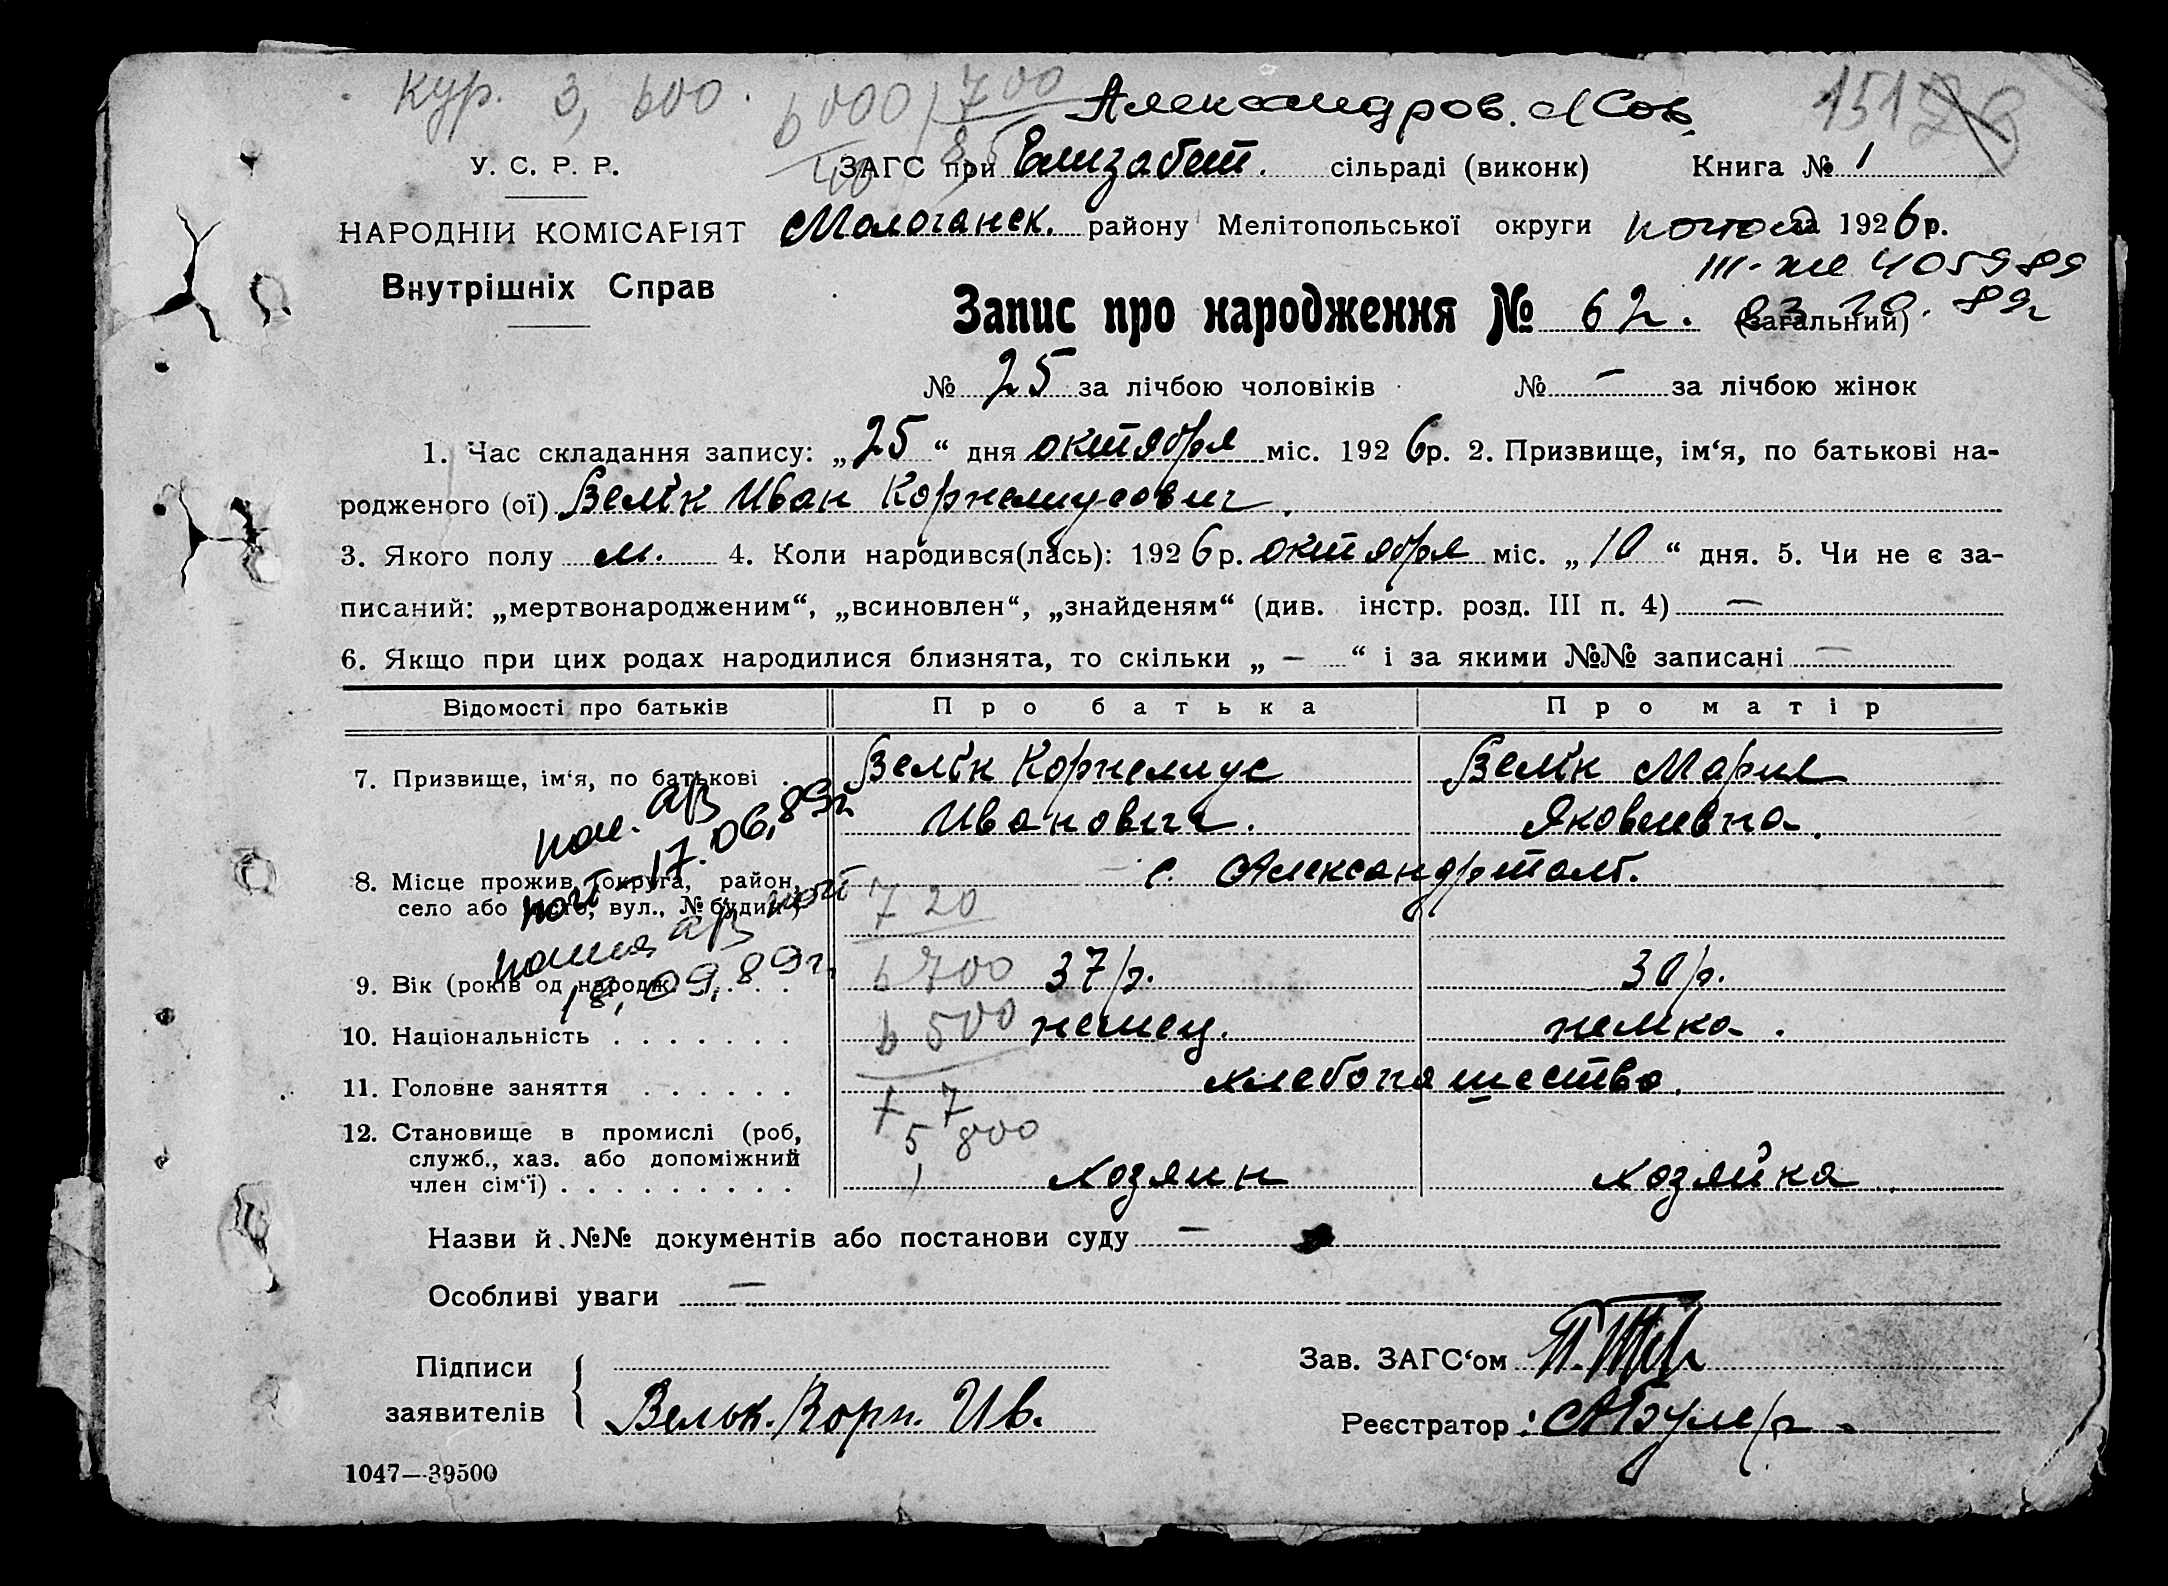 кур. 3, 600. 6000 700 Александров. с/Сов. 151
У. С. Р. Р. ЗАГС при Елизабет. сільраді (виконк) Книга № 1
НАРОДНІЙ КОМІСАРІЯТ Молочанск. району Мелітопольської округи за 1926р.
III-ЖС 405989
Внутрішніх Справ
Запис про народження № 62. (загальний) 89г
№ 25 за лічбою чоловіків № — за лічбою жінок
1. Час складання запису: „25“ дня октября міс. 1926р. 2. Призвище, ім‘я, по батькові на-
родженого (ої) Вельк Иван Корнелиусович.
3. Якого полу м. 4. Коли народився(лась): 1926р. октября міс. „10“ дня. 5. Чи не є за-
писаний: „мертвонародженим“, „всиновлен“, „знайденям“ (див. інстр. розд. III п. 4) —
6. Якщо при цих родах народилися близнята, то скільки „ — “ і за якими №№ записані —
Відомості про батьків Про батька Про матір
7. Призвище, ім‘я, по батькові . Вельк Корнелиус Вельк Мария
Иванович. Яковлевна.
17.06.89г
8. Місце прожив. (округа, район, с. Александрталь.
село або місто, вул., № будин.) 720
18.09.89г.
9. Вік (років од народж. . . . . 6700 37 р. 30 р.
10. Національність . . . . . . . 6500 немец. немка.
11. Головне заняття . . . . . . хлебопашество.
7
5, 800
12. Становище в промислі (роб,
служб., хаз. або допоміжний
член сім‘ї) . . . . . . . . . хозяин хозяйка
Назви й №№ документів або постанови суду —
Особливі уваги —
Підписи Зав. ЗАГС‘ом
заявителів Вельк. Корн. Ив. Реєстратор:
1047—39500